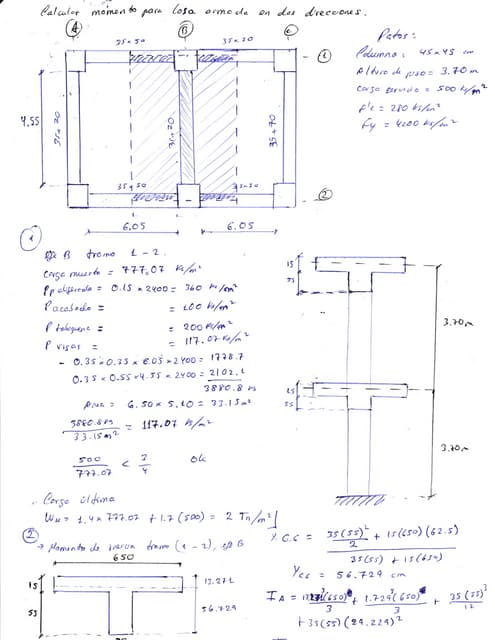 Calcular momento para losa armada en dos direcciones.
A
B
C
35x50
35x50
Datos:
Columna: 45x45 cm
Altura de piso = 3.70 m
Carga servicio = 500 kg/m²
f'c = 280 kg/m²
Fy = 4200 kg/m²
1
4.55
35x70
35x70
35x70
35x50
35x50
2
6.05
6.05
1
Eje B tramo 1-2.
Carga muerta = 777.07 kg/m²
= 0.15 x 2400 = 360 kg/m²
P acabado = = 100 kg/m²
P tabiqueria = = 200 kg/m²
P vigas = = 117.07 kg/m²
- 0.35 x 0.35 x 6.05 x 2400 = 1778.7
0.35 x 0.55 x 4.55 x 2400 = 2102.1
3880.8 kg
Area = 6.50 x 5.10 = 33.15 m²
3880.8 kg / 33.15 m² = 117.07 kg/m²
500 / 777.07 < 3/4 ok
Carga última
Wu = 1.4 x 777.07 + 1.7 (500) = 2 Tn/m²
15
55
3.70m
15
55
3.70m
2
→ Momento de inercia tramo (1-2), eje B
650
15
55
13.271
56.729
35
Y C.G = (35(55)²/2 + 15(650)(62.5)) / (35(55) + 15(650))
YCG = 56.729 cm
+ 1.729³(650)/3 + 35(55)³/12
+ 35(55)(29.229)²